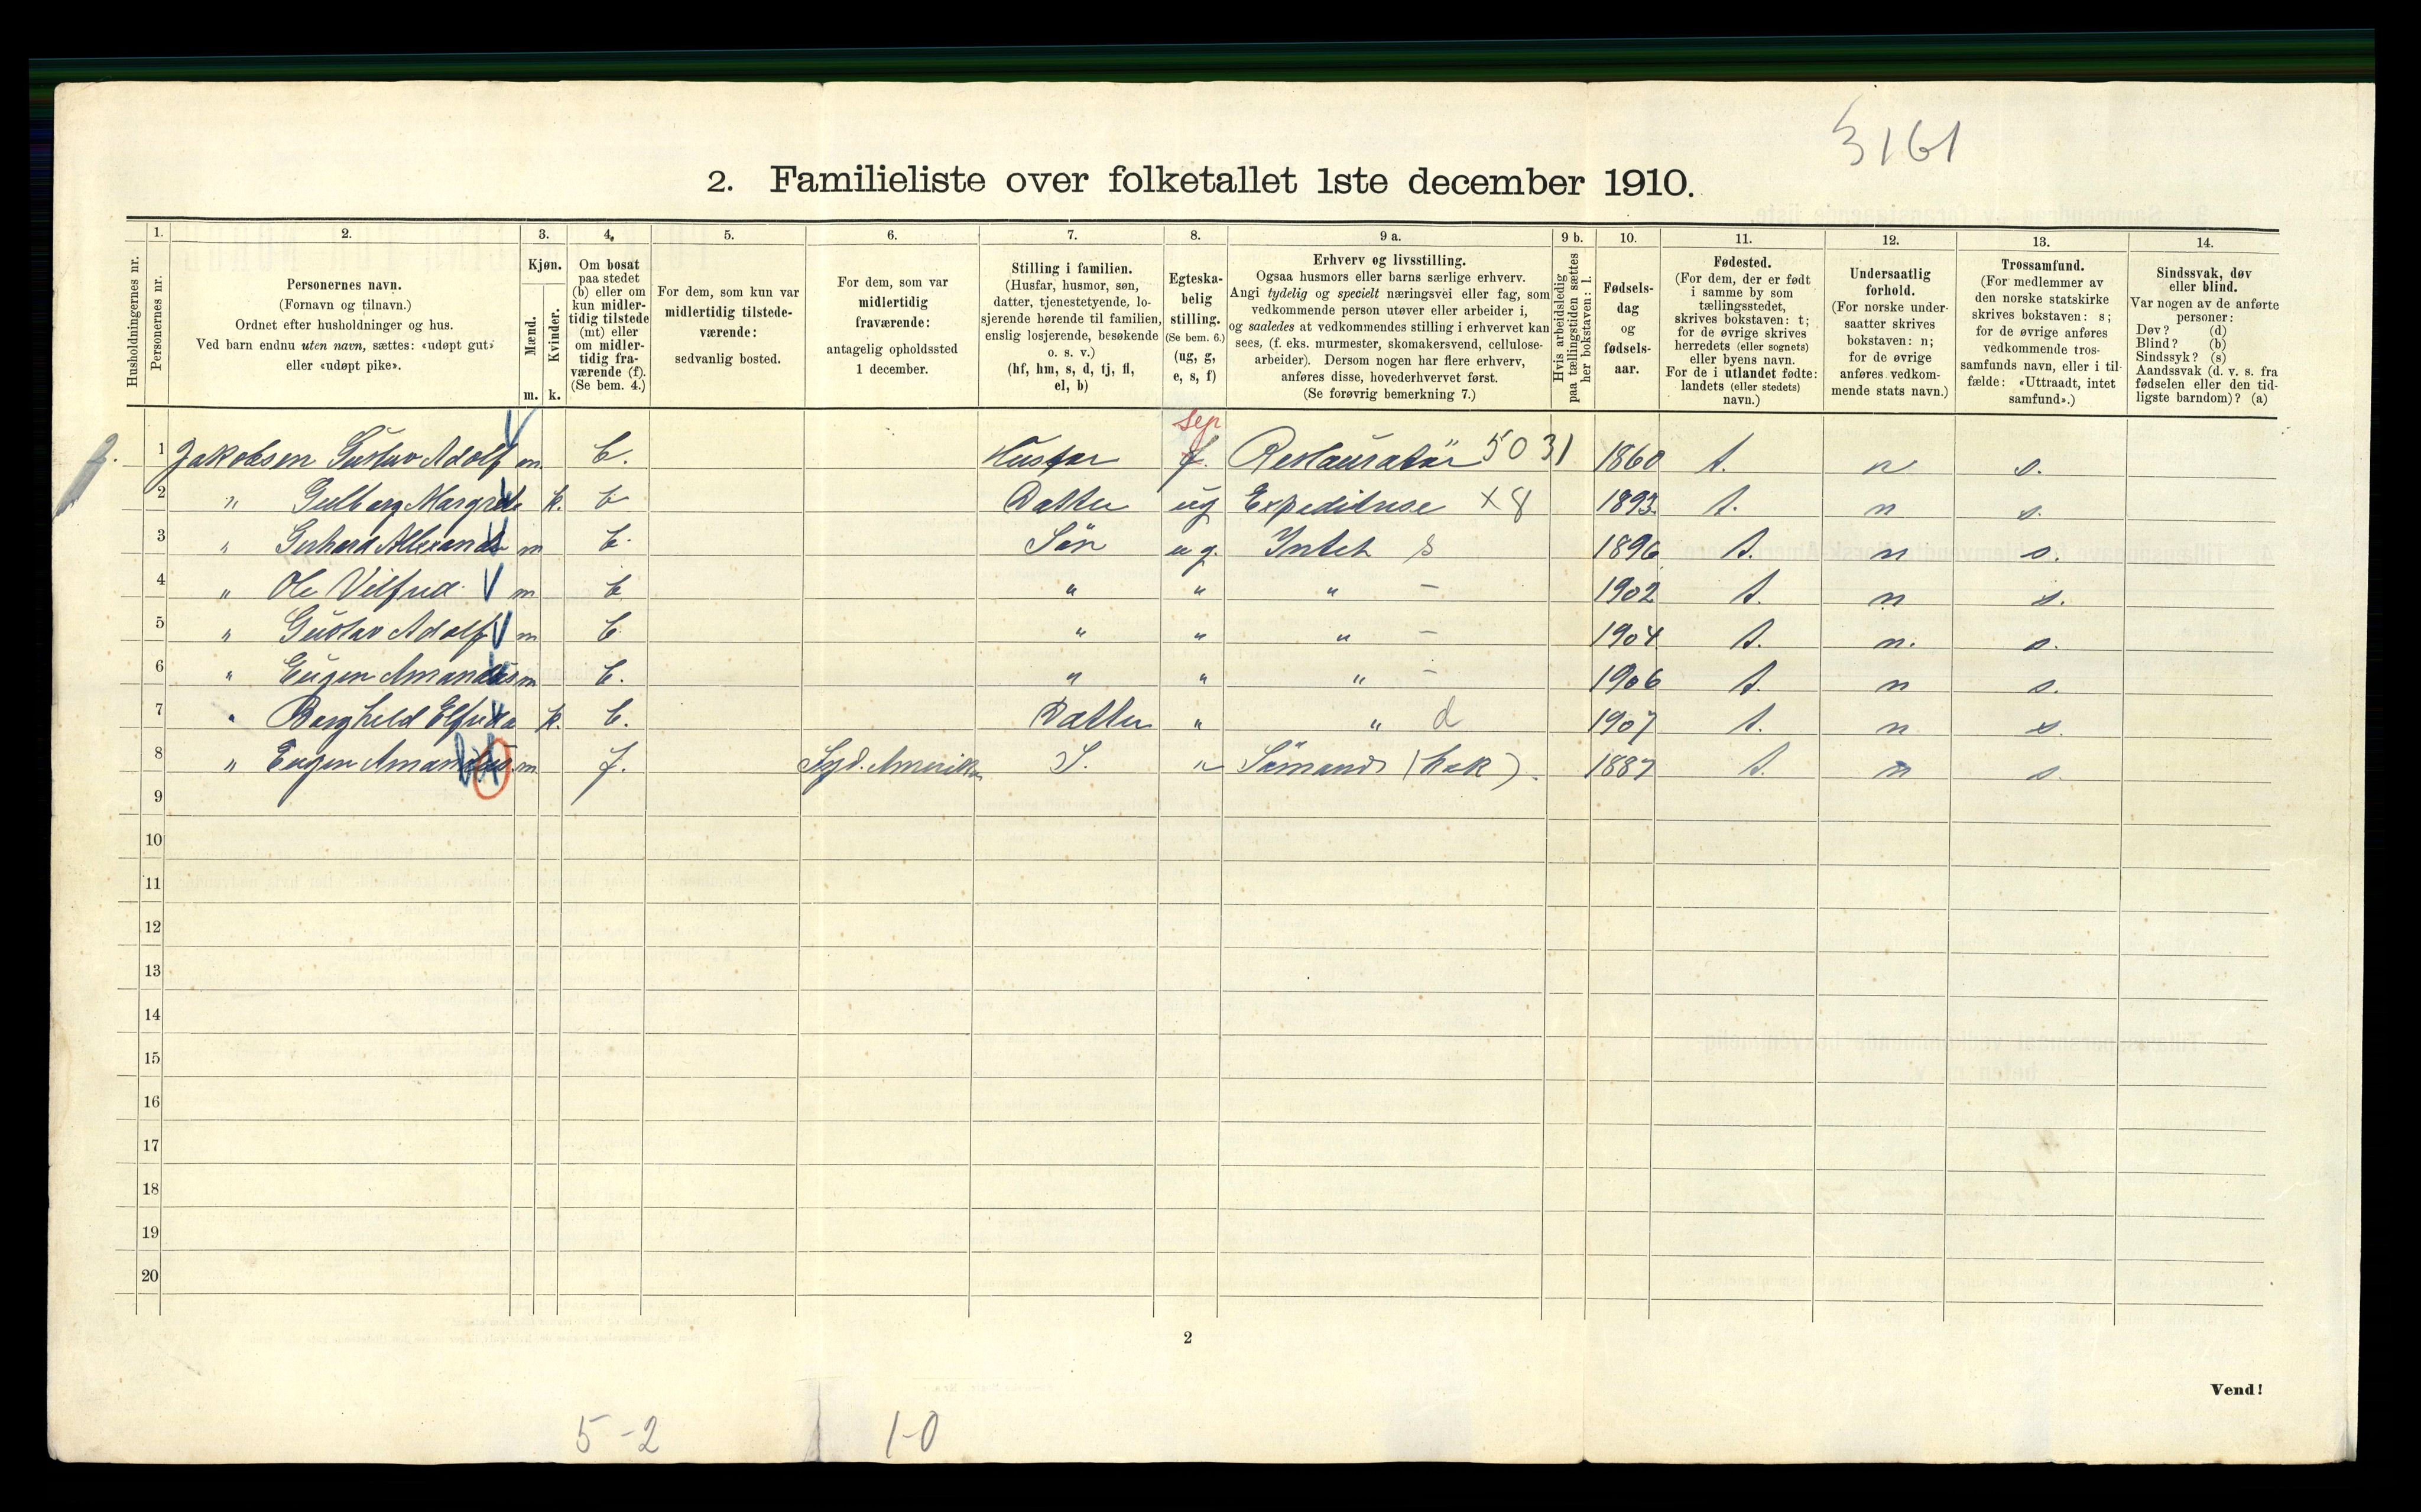 3161
2. Familieliste over folketallet 1ste december 1910.
Husholdningernes nr.
1.
Personernes nr.
2.
Personernes navn.
(Fornavn og tilnavn.)
Ordnet efter husholdninger og hus.
Ved barn endnu uten navn, sættes: «udøpt gut»
eller «udøpt pike».
3.
Kjøn.
Mænd.
Kvinder.
m. k.
4.
Om bosat
paa stedet
(b) eller om
kun midler-
tidig tilstede
(mt) eller
om midler-
tidig fra-
værende (f).
(Se bem. 4.)
5.
For dem, som kun var
midlertidig tilstede-
værende:
sedvanlig bosted.
6.
For dem, som var
midlertidig
fraværende:
antagelig opholdssted
1 december.
7.
Stilling i familien.
(Husfar, husmor, søn,
datter, tjenestetyende, lo-
sjerende hørende til familien,
enslig losjerende, besøkende
o. s. v.)
(hf, hm, s, d, tj, fl,
el, b)
8.
Egteska-
belig
stilling.
(Se bem. 6.)
(ug, g,
e, s, f)
9 a.
Erhverv og livsstilling.
Ogsaa husmors eller barns særlige erhverv.
Angi tydelig og specielt næringsvei eller fag, som
vedkommende person utøver eller arbeider i,
og saaledes at vedkommendes stilling i erhvervet kan
sees, (f. eks. murmester, skomakersvend, cellulose-
arbeider). Dersom nogen har flere erhverv,
anføres disse, hovederhvervet først.
(Se forøvrig bemerkning 7.)
9 b.
Hvis arbeidsledig
paa tællingstiden sættes
her bokstaven: l.
10.
Fødsels-
dag
og
fødsels-
aar.
11.
Fødested.
(For dem, der er født
i samme by som
tællingsstedet,
skrives bokstaven: t;
for de øvrige skrives
herredets (eller sognets)
eller byens navn.
For de i utlandet fødte:
landets (eller stedets)
navn.)
12.
Undersaatlig
forhold.
(For norske under-
saatter skrives
bokstaven: n;
for de øvrige
anføres vedkom-
mende stats navn.)
13.
Trossamfund.
(For medlemmer av
den norske statskirke
skrives bokstaven: s;
for de øvrige anføres
vedkommende tros-
samfunds navn, eller i til-
fælde: «Uttraadt, intet
samfund».)
14.
Sindssvak, døv
eller blind.
Var nogen av de anførte
personer:
Døv? (d)
Blind? (b)
Sindssyk? (s)
Aandssvak (d. v. s. fra
fødselen eller den tid-
ligste barndom)? (a)
sep
1 Jakobsen Gustav Adolf m b. Husfar f. Restauratör 5031 1860 t. n s.
2 " Gulborg Margrete k. b Datter ug Expeditrise x 8 1893 t. n s.
3 " Gerhard Alexander m b. Sön ug. Intet s 1896 t. n s.
4 " Ole Vilfred m b " " " – 1902 t. n s.
5 " Gustav Adolf m b " " " – 1904 t. n. s.
6 " Eugen Amandus m b. " " " – 1906 t. n s.
7 " Borghild Elfrida k. b. Datter " " d 1907 t. n s.
8 " Eugen Amandus m f. Syd. Amerika S. " Sömand (kok). 1887 t. n s.
9
10
11
12
13
14
15
16
17
18
19
20
2
Vend!
5-2 1-0